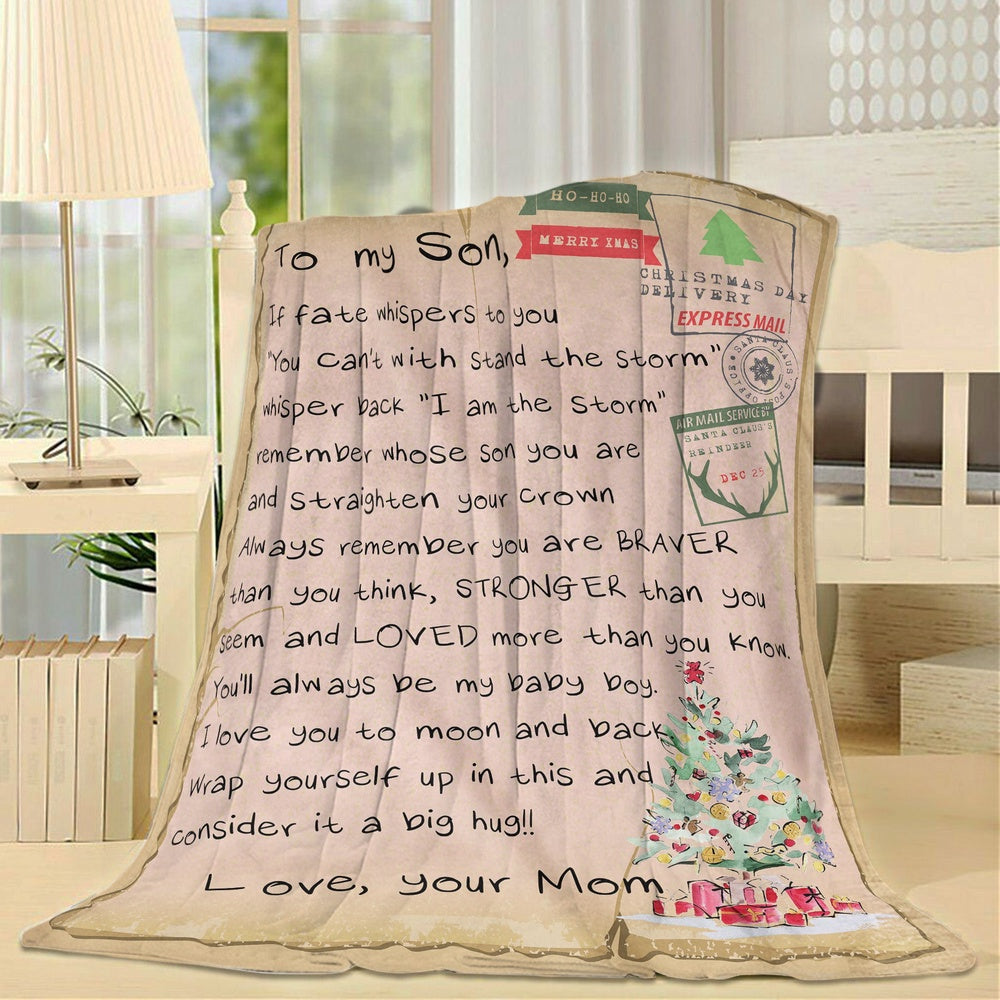 To my Son,
If fate whispers to you
"You can't with stand the storm"
whisper back "I am the storm"
remember whose son you are
and straighten your crown
Always remember you are BRAVER
than you think, STRONGER than you
seem and LOVED more than you know.
You'll always be my baby boy.
I love you to moon and back
Wrap yourself up in this and
consider it a big hug!!
Love, your Mom
HO-HO-HO
MERRY XMAS
CHRISTMAS DAY
DELIVERY
EXPRESS MAIL
SANTA CLAUS'S POST OFFICE
AIR MAIL SERVICE BY
SANTA CLAUS'S
REINDEER
DEC 25